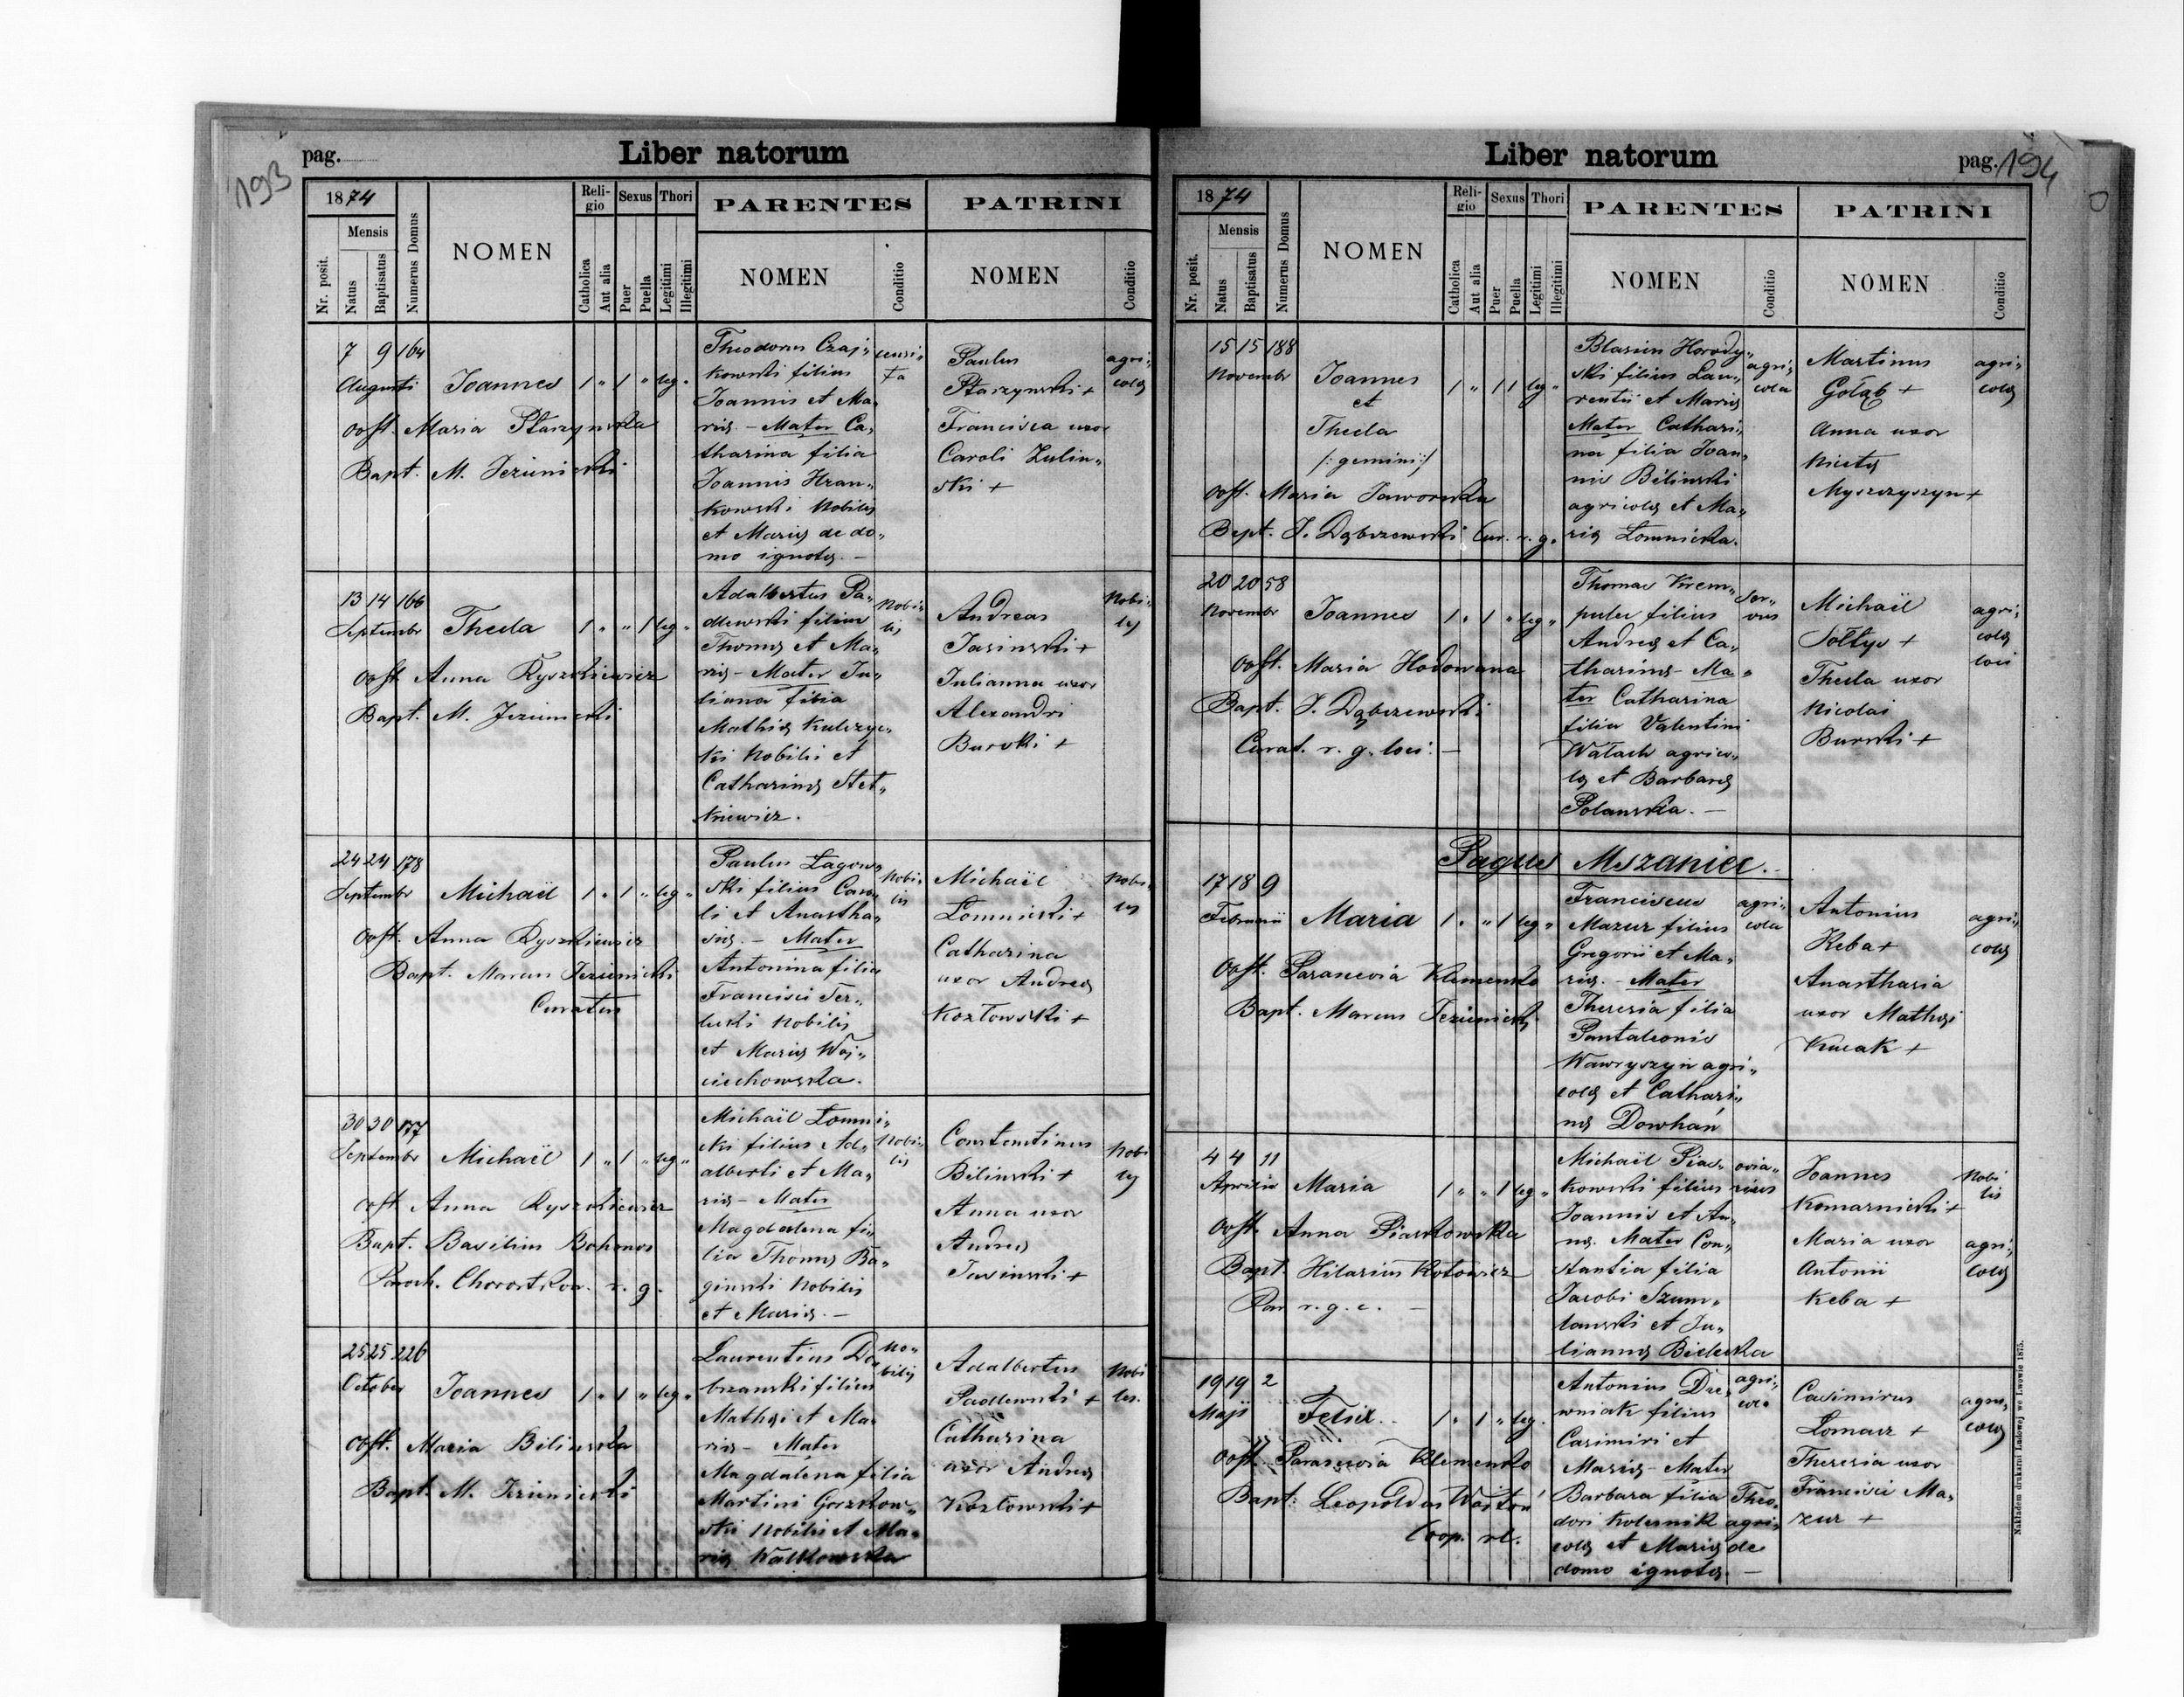 193
pag.
Liber natorum
1874
Mensis
Nr. posit.
Natus
Baptisatus
Numerus Domus
NOMEN
Religio
Catholica
Aut alia
Sexus
Puer
Puella
Thori
Legitimi
Illegitimi
PARENTES
NOMEN
Conditio
PATRINI
NOMEN
Conditio
7 9 164
Augusti Joannes 1 " 1 " leg "
Obst. Maria Starzynska
Bapt. M. Jezienicki
Theodorus Czaj„
kowski filius
Joannis et Ma„
riæ. - Mater Ca„
tharina filia
Joannis Hran„
kowski Nobilis
et Mariæ de do„
mo ignotæ. -
Paulus
Starzynski +
Francisca uxor
Caroli Zulin„
ski +
agri„
colæ
13 14 166
Septembr Thecla 1 " " 1 leg "
Obst. Anna Ryszkiewicz
Bapt. M. Jezienicki
Adalbertus Pa„
dlewski filius
Thomæ et Ma„
riæ - Mater Ju„
liana filia
Mathiæ Kulczyc„
ki Nobilis et
Catharinæ Stet„
kiewicz.
Nobi„
lis
Andreas
Jasinski +
Julianna uxor
Alexandri
Burski +
Nobi„
les
24 24 178
Septembr Michaël 1 " 1 " leg "
Obst. Anna Ryszkiewicz
Bapt. Marcus Jezienicki
Curatus
Paulus Lagow„
ski filius Caro„
li et Anastha„
siæ. - Mater
Antonina filia
Francisci Ter„
lecki Nobilis
et Mariæ Woj„
ciechowska.
Nobi„
lis
Michaël
Lomnicki +
Catharina
uxor Andreæ
Kozlowski +
Nobi„
les
30 30 177
Septembr Michaël 1 " 1 " leg "
Obst. Anna Ryszkiewicz
Bapt. Basilius Bohonos
Paroch. Chorostkow. r. g.
Michaël Lomni„
cki filius Ad„
alberti et Ma„
riæ - Mater
Magdalena fi„
lia Thomæ Ba„
ginski Nobilis
et Mariæ. -
Nobi„
lis
Constantinus
Bilinski +
Anna uxor
Andreæ
Jasinski +
Nobi
les
25 25 226
October Joannes 1 " 1 " leg "
Obst. Maria Bilinska
Bapt. M. Jezienicki
Laurentius Do„
brzanski filius
Mathæi et Ma„
riæ - Mater
Magdalena filia
Martini Gorzkow„
ski Nobilis et Ma„
riæ Walkowska
No„
bilis
Adalbertus
Padlewski +
Catharina
uxor Andreæ
Kozlowski +
Nobi
les.
Liber natorum
pag. 194
1874
Mensis
Nr. posit.
Natus
Baptisatus
Numerus Domus
NOMEN
Religio
Catholica
Aut alia
Sexus
Puer
Puella
Thori
Legitimi
Illegitimi
PARENTES
NOMEN
Conditio
PATRINI
NOMEN
Conditio
15 15 188
Novembr Joannes 1 " 1 1 leg "
et
Thecla
/: gemini :/
Obst. Maria Jaworska
Bapt. J. Dąbczewski Cur. r. g.
Blasius Horody„
ski filius Lau„
rentii et Mariæ
Mater Cathari„
na filia Joan„
nis Bilinski
agricolæ et Ma„
riæ Lomnicka.
agri„
cola
Martinus
Gołąb +
Anna uxor
Nicetæ
Myszczyszyn +
agri„
colæ
20 20 58
Novembr Joannes 1 " 1 " leg "
Obst. Maria Hodowana
Bapt. J. Dąbczewski
Curat. r. g. loci. -
Thomas Krem„
pulec filius
Andreæ et Ca„
tharinæ - Ma„
ter Catharina
filia Valentini
Wałach agrico„
læ et Barbaræ
Polanska. -
Ser„
vus
Michaël
Sołtys +
Thecla uxor
Nicolai
Burski +
agri„
colæ
loci
Pagus Mszaniec.
17 18 9
Februarii Maria 1 " " 1 leg "
Obst. Parascevia Klemenko
Bapt. Marcus Jezienicki
Franciscus
Mazur filius
Gregorii et Ma„
riæ. - Mater
Theresia filia
Pantaleonis
Wawryszyn agri„
colæ et Cathari„
næ Dowhań
agri„
cola
Antonius
Keba +
Anasthasia
uxor Mathæi
Kucak +
agri„
colæ
4 4 11
Aprilis Maria 1 " " 1 leg "
Obst. Anna Piaskowska
Bapt. Hilarius Kotowicz
Par r. g. c. -
Michaël Pias„
kowski filius
Joannis et An„
næ. Mater Con„
stantia filia
Jacobi Szum„
lanski et Ju„
liannæ Bielecka
ovia„
rius
Joannes
Komarnicki +
Maria uxor
Antonii
Keba +
Nobi
lis
agri„
colæ
19 19 2
Maji Felix 1 " 1 " leg.
Obst. Parascevia Klemenko
Bapt: Leopoldus Wojton
Coop. rl.
Antonius Dre„
wniak filius
Casimiri et
Mariæ - Mater
Barbara filia Theo„
dori Kolesnik agri„
colæ et Mariæ de
domo ignotæ. -
agri„
cola
Casimirus
Lomasz +
Theresia uxor
Francisci Ma„
zur +
agri„
colæ
Nakładem drukarni Ludowej we Lwowie 1875.